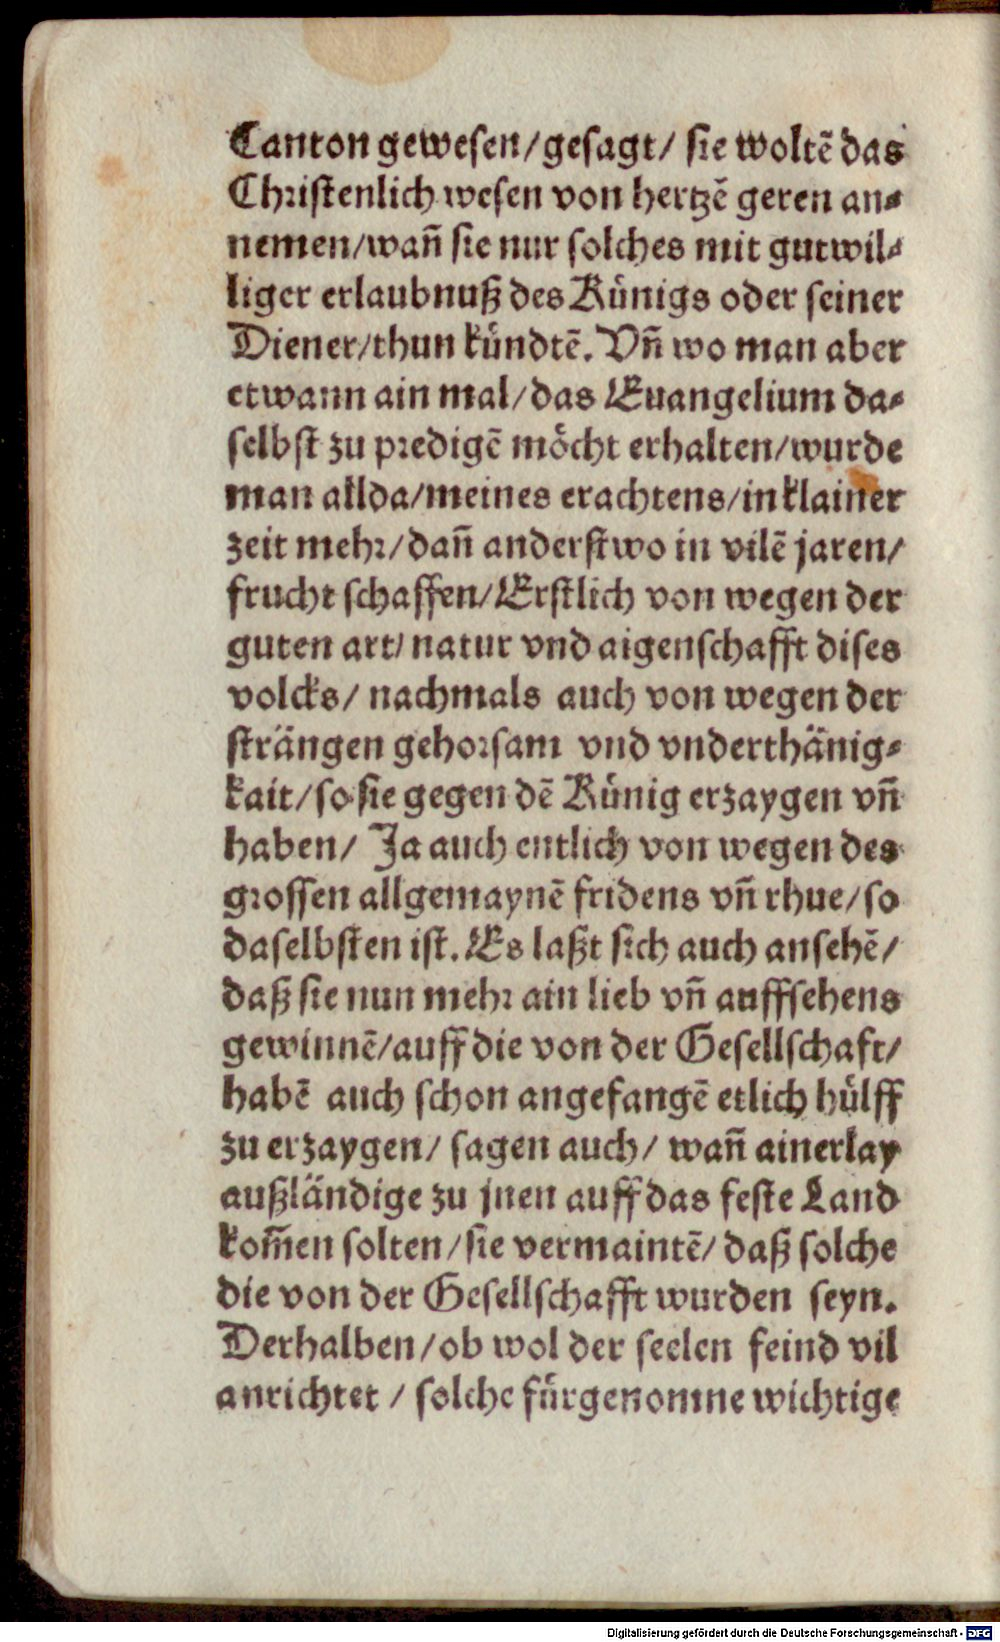 Canton gewesen/gesagt/ sie woltē das
Christenlich wesen von hertzē geren an⸗
nemen/wañ sie nur solches mit gutwil⸗
liger erlaubnuß des Künigs oder seiner
Diener/thun kündtē. Vñ wo man aber
etwann ain mal/das Euangelium da⸗
selbst zu predigē möcht erhalten/wurde
man allda/meines erachtens/in klainer
zeit mehr/dañ anderstwo in vilē jaren/
frucht schaffen/Erstlich von wegen der
guten art/natur vnd aigenschafft dises
volcks/ nachmals auch von wegen der
strängen gehorsam vnd vnderthänig⸗
kait/so sie gegen dē Künig erzaygen vñ
haben/ Ja auch entlich von wegen des
grossen allgemaynē fridens vñ rhue/so
daselbsten ist. Es laßt sich auch ansehē/
daß sie nun mehr ain lieb vñ auffsehens
gewinnē/auff die von der Gesellschaft/
habē auch schon angefangē etlich hülff
zu erzaygen/ sagen auch/ wañ ainerlay
außländige zu jnen auff das feste Land
kom̃en solten/sie vermaintē/daß solche
die von der Gesellschafft wurden seyn.
Derhalben/ob wol der seelen feind vil
anrichtet / solche fürgenomne wichtige
Digitalisierung gefördert durch die Deutsche Forschungsgemeinschaft - DFG